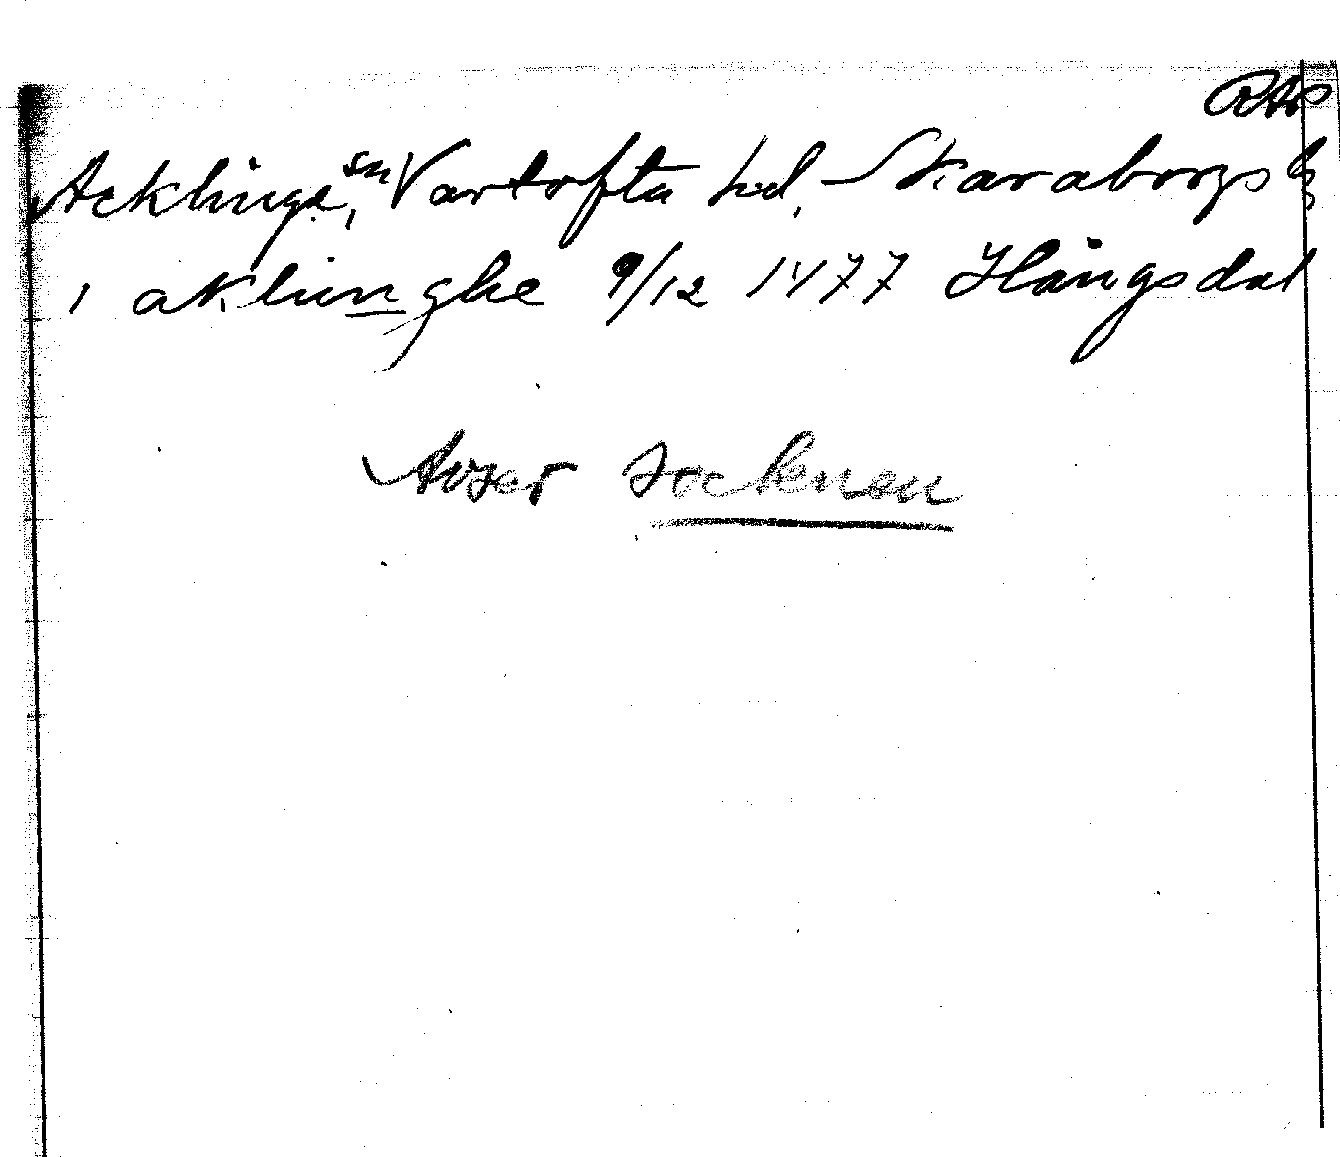 RAP
Acklinga sn, Vartofta hd, Skaraborgs l
i aklinghe 9/12 1477 Hångsdal
Avser socknen